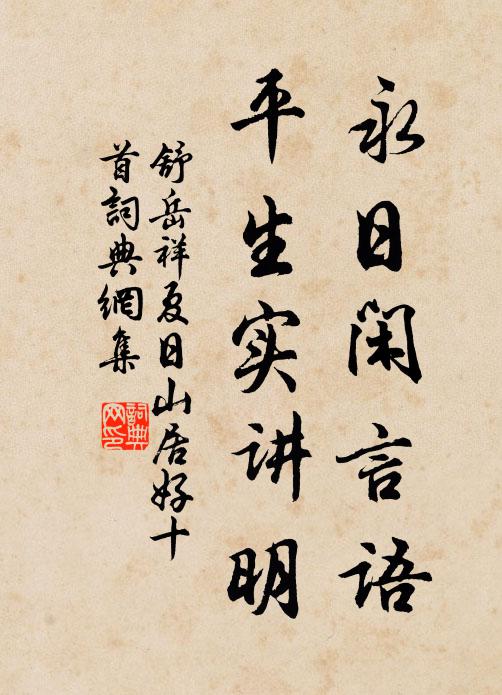 永日闲言语
平生实讲明
舒岳祥夏日山居好十
首詞典網集
詞典网印